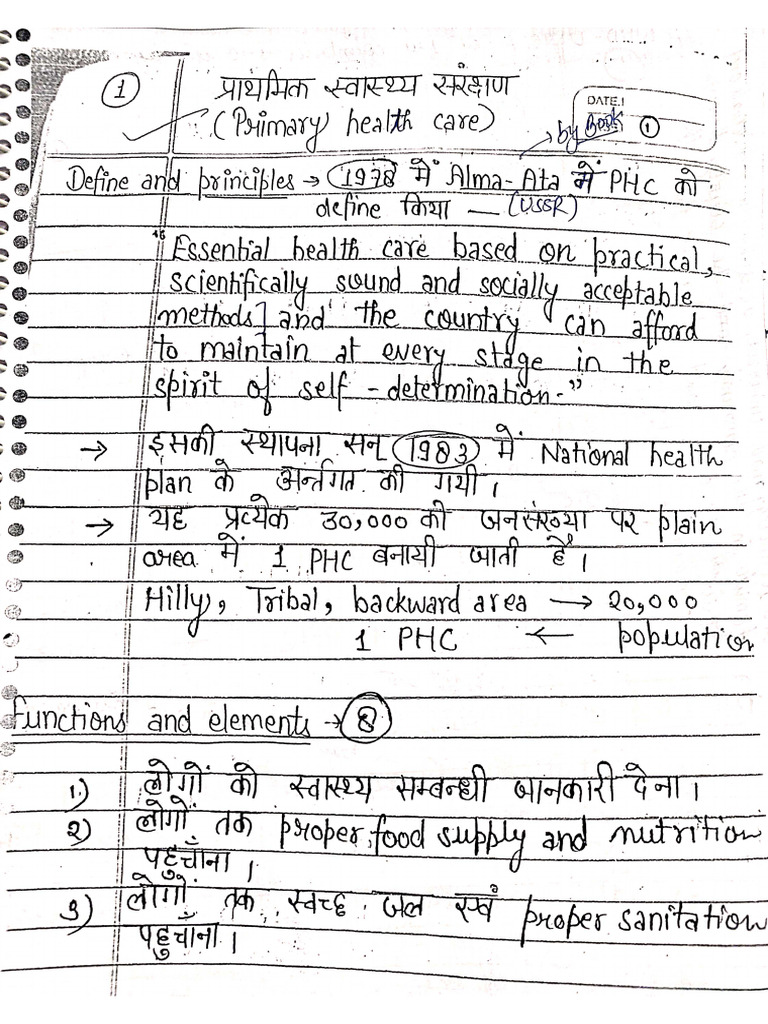 ①
प्राथमिक स्वास्थ्य संरक्षण
(Primary health care)
DATE.
by Book ①
Define and principles → 1978 में Alma-Ata में PHC को
define किया — (USSR)
"Essential health care based on practical,
scientifically sound and socially acceptable
methods] and the country can afford
to maintain at every stage in the
spirit of self-determination."
→ इसकी स्थापना सन् 1983 में National health
plan के अर्न्तगत की गयी।
→ यह प्रत्येक 30,000 की जनसंख्या पर plain
area में 1 PHC बनायी जाती है।
Hilly, Tribal, backward area → 20,000
1 PHC ← population
Functions and elements → 8
1) लोगों को स्वास्थ्य सम्बन्धी जानकारी देना।
2) लोगों तक proper food supply and nutrition
पहुचाँना।
3) लोगों तक स्वच्छ जल एवं proper sanitation
पहुचाँना।